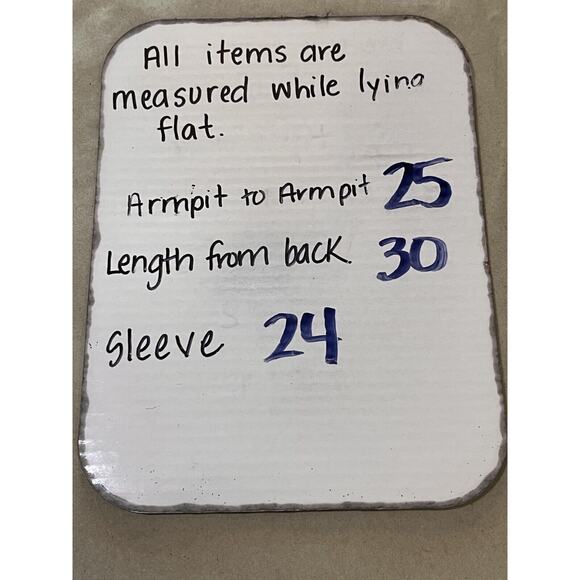 All items are
measured while lying
flat.
Armpit to Armpit 25
Length from back. 30
Sleeve 24